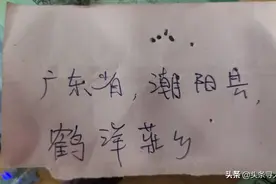 广东省，潮阳县，
鹤洋乡
头条@头条寻人